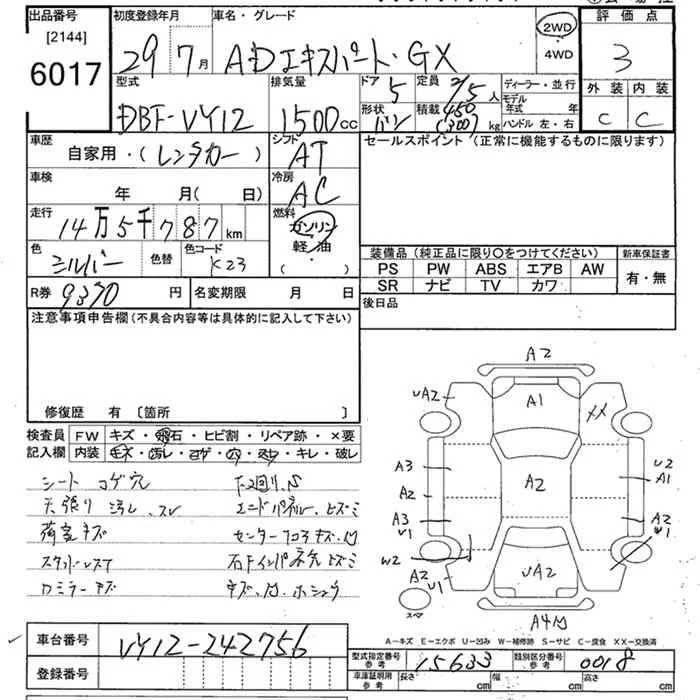 出品番号
[2144]
6017
初度登録年月
29年7月
車名・グレード
ADエキスパート・GX
2WD
4WD
評価点
3
外装 内装
C C
型式
DBF-VY12
排気量
1500cc
ドア
5
形状
バン
定員
2/5人
積載
450
(300)kg
ディーラー・並行
モデル年式 年
ハンドル 左・右
車歴
自家用・(レンタカー)
シフト
AT
セールスポイント(正常に機能するものに限ります)
車検
年 月(日)
冷房
AC
走行
14万5千787km
燃料
ガソリン
軽/油
( )
色
シルバー
色替
色コード
K23
装備品(純正品に限り○をつけてください)
新車保証書
PS PW ABS エアB AW
SR ナビ TV カワ
有・無
R券 9370円
名変期限 月 日
後日品
注意事項申告欄(不具合内容等は具体的に記入して下さい)
修復歴 有 [箇所 ]
検査員記入欄
FW キズ・飛石・ヒビ割・リペア跡・×要
内装 キズ・汚レ・コゲ・穴・スレ・キレ・破レ
シート コゲ穴
天張り 汚レ、スレ
荷室キズ
ロミラーキズ
下回りS
エンドパネルヒズミ
センターフロアキズ凹
A2
UA2
A1
XX
A3
A2
A3
U1
A2
U2
A1
A2
W1
W2
A2
U1
UA2
A4凹
スペア
A-キズ E-エクボ U-凹み W-補修跡 S-サビ C-腐食 XX-交換済
車台番号
VY12-242756
登録番号
型式指定番号
参考
15633
類別区分番号
参考
0018
車庫証明用
参考
長さ cm
幅 cm
高さ cm